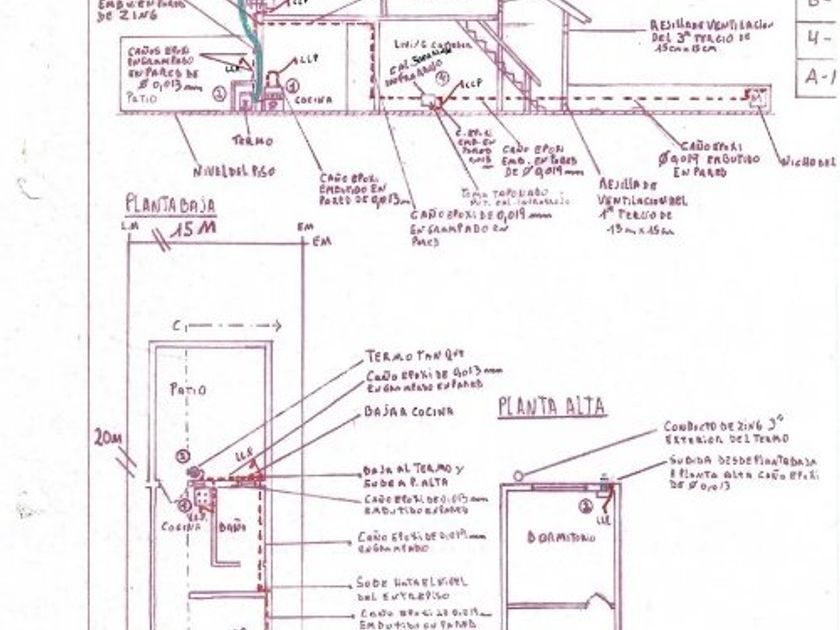 EMBUTEN PARED
DE ZING
CAÑOS EPOXI
ENGRAMPADO
EN PARED DE
Ø 0,013 mm
PATIO
LLP
LLP
COCINA
TERMO
NIVEL DEL PISO
CAÑO EPOXI
EMBUTIDO EN
PARED DE 0,013m
LIVING COMEDOR
INFRAROJO
LLP
CAÑO EPOXI
EMB. EN PARED
DE Ø 0,019mm
TOMA TAPONADO
CAÑO EPOXI DE 0,019 mm
ENGRAMPADO EN
PARED
REJILLA DE VENTILACION
DEL 3º TERCIO DE
15cm x 15cm
REJILLA DE
VENTILACION DEL
1º TERCIO DE
15m x 15cm
CAÑO EPOXI
Ø 0,019 EMBUTIDO
EN PARED
NICHO DEL
B-
4-
A-1
PLANTA BAJA
L.M
15 M
EM
EM
C
PATIO
20M
COCINA
BAÑO
LLP
LLP
TERMO TANQUE
CAÑO EPOXI DE 0,013 mm
ENGRAMPADO EN PARED
BAJA A COCINA
BAJA AL TERMO Y
SUBE A P. ALTA
CAÑO EPOXI DE 0,013 mm
EMBUTIDO EN PARED
CAÑO EPOXI DE 0,019 mm
ENGRAMPADO
SUBE HASTA EL NIVEL
DEL ENTREPISO
CAÑO EPOXI DE 0,019
EMBUTIDO EN PARED
PLANTA ALTA
CONDUCTO DE ZING 3"
EXTERIOR DEL TERMO
SUBIDA DESDE PLANTA BAJA
A PLANTA ALTA CAÑO EPOXI
DE Ø 0,013
LLP
DORMITORIO